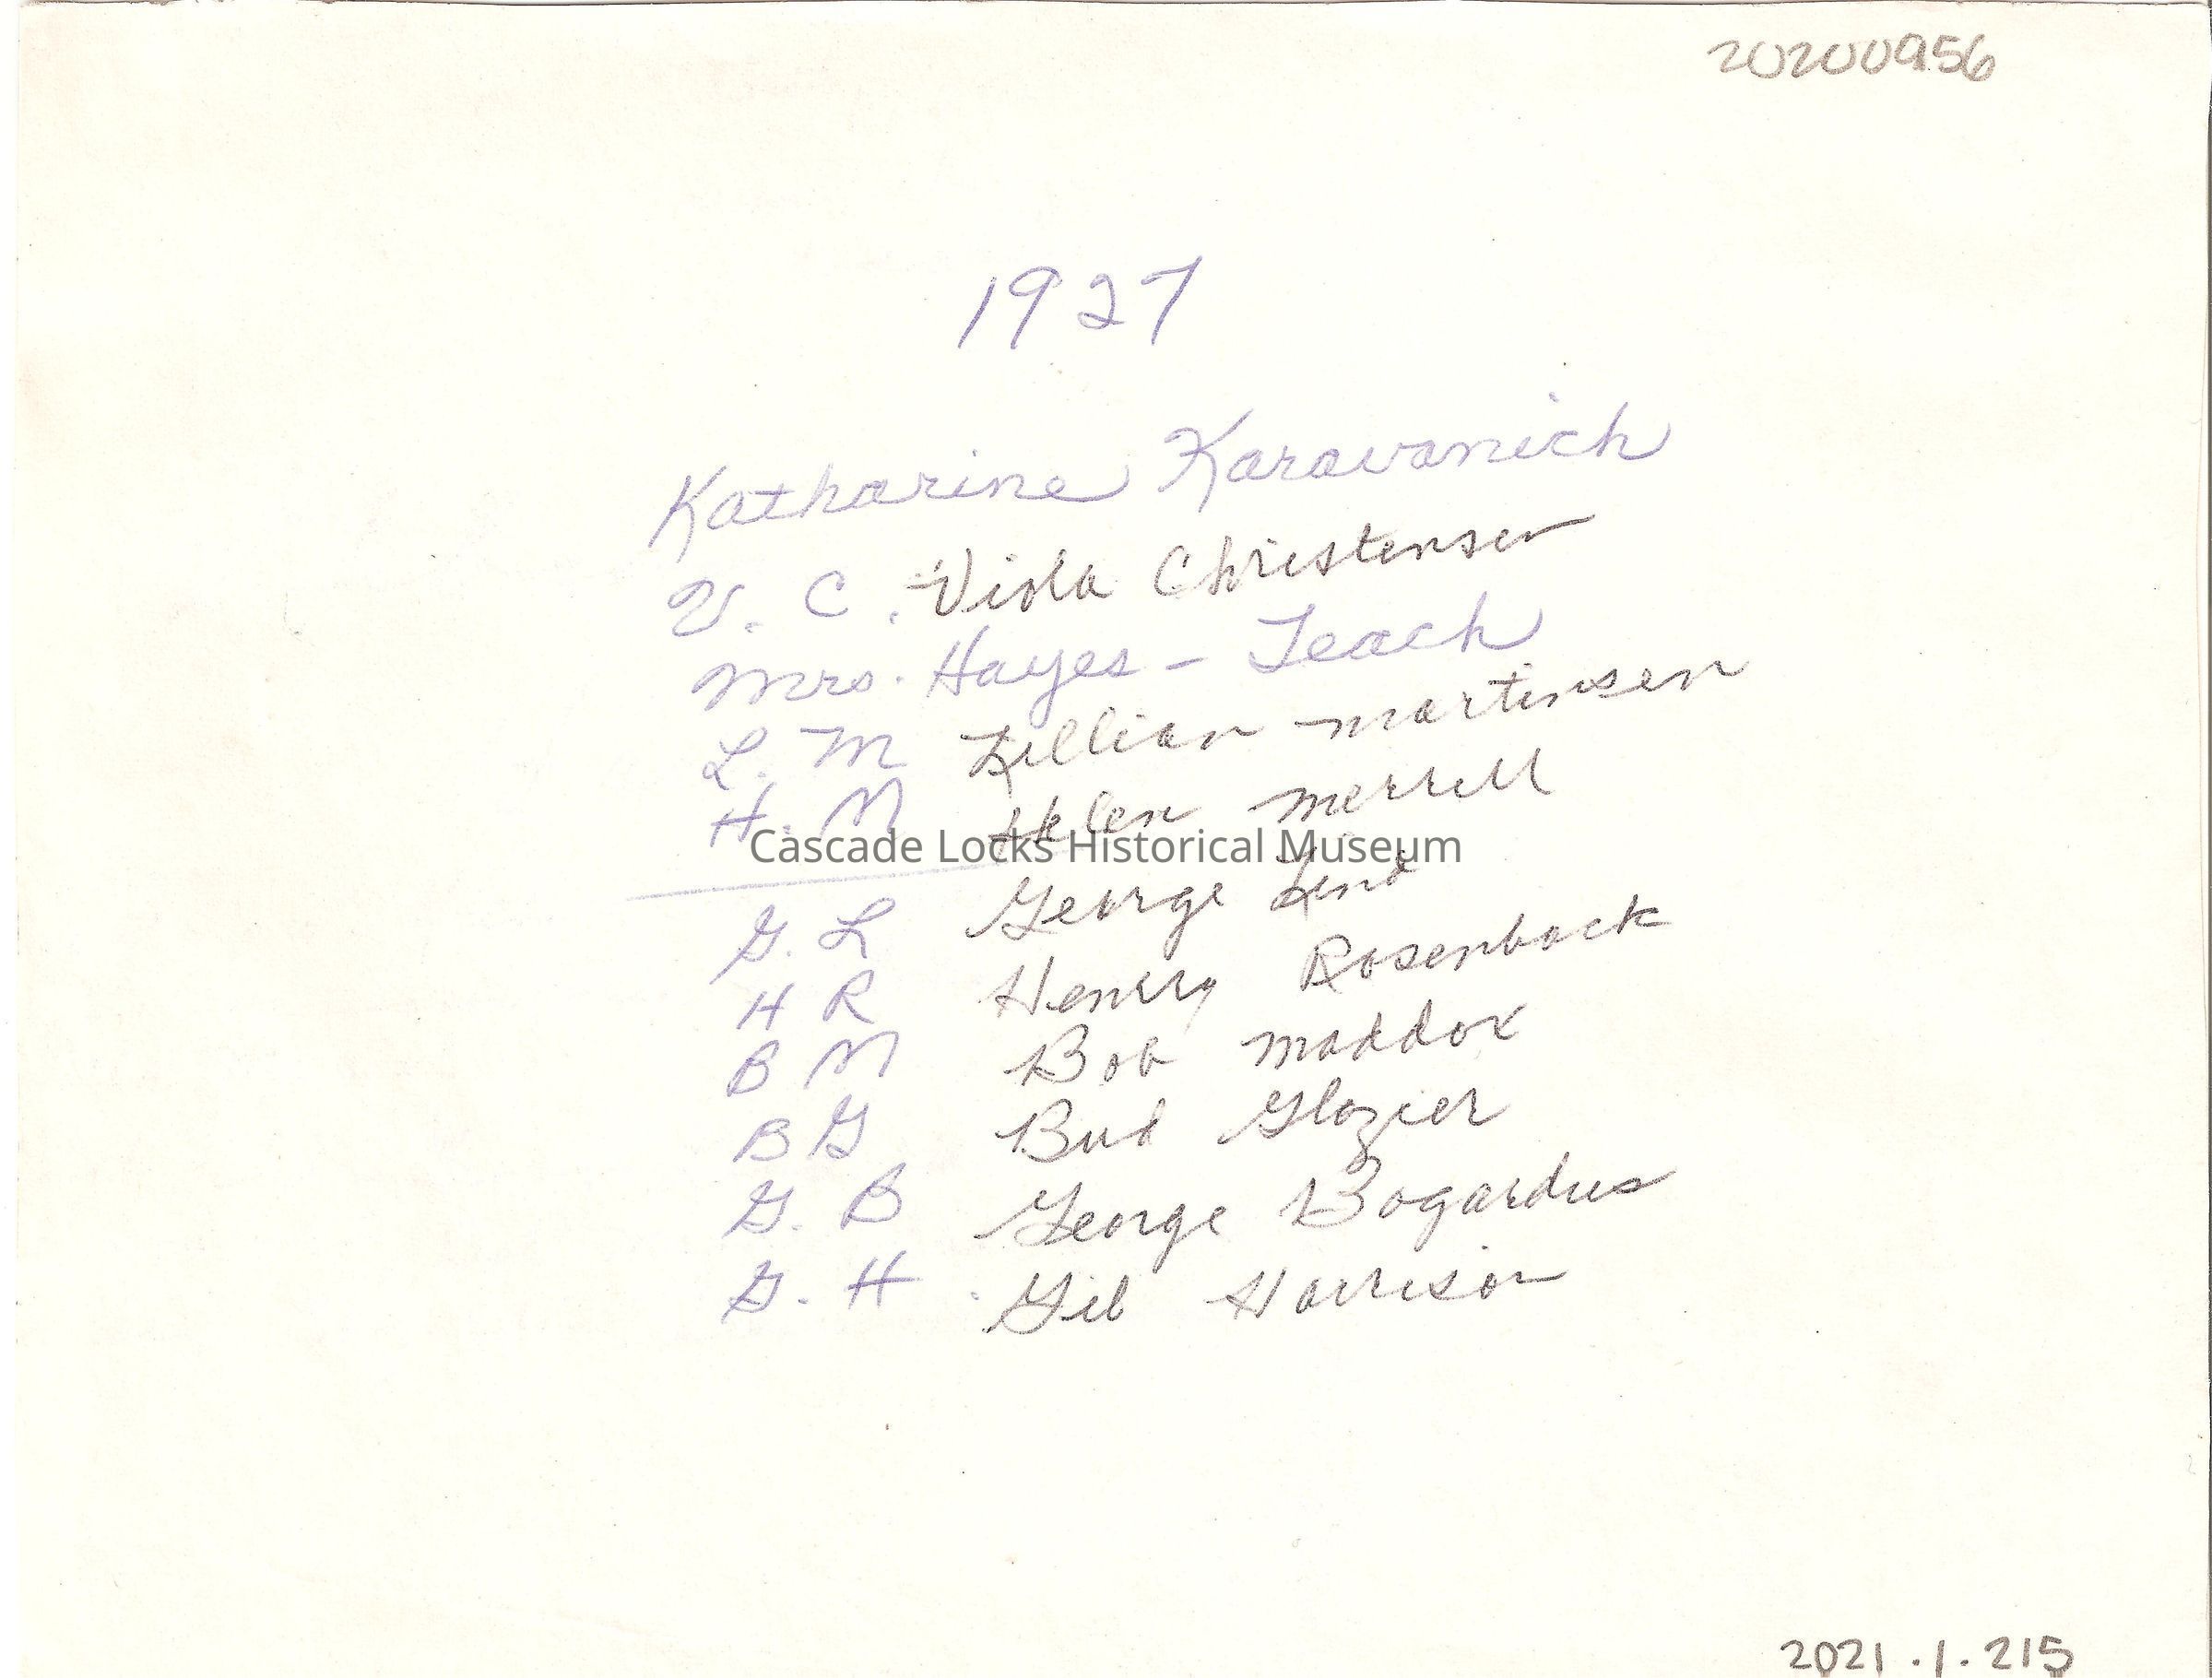 20200956
1927
Katharine Karavanich
V. C. Viola Christensen
Mrs. Hayes - Teach
L. M Lillian Martinsen
H. M Helen Merrill
Cascade Locks Historical Museum
G. L George Lind
H R Henry Rosenback
B M Bob Maddox
B G Bud Glazier
G. B George Bogardus
G. H. Gib Harrison
2021.1.215